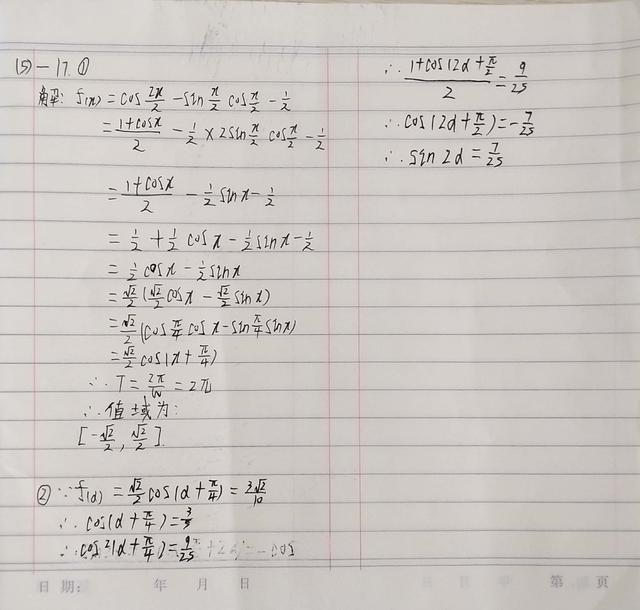 (5)－17.①
解: f(x) = cos 2x/2 － sin x/2 cos x/2 － 1/2
= (1+cosx)/2 － 1/2 × 2sin x/2 cos x/2 － 1/2
= (1+cosx)/2 － 1/2 sinx － 1/2
= 1/2 + 1/2 cosx － 1/2 sinx － 1/2
= 1/2 cosx － 1/2 sinx
= √2/2 (√2/2 cosx － √2/2 sinx)
= √2/2 (cos π/4 cosx － sin π/4 sinx)
= √2/2 cos(x + π/4)
∴ T = 2π/w = 2π
∴ 值域为:
[－√2/2, √2/2].
② ∵ f(α) = √2/2 cos(α + π/4) = 3√2/10
∴ cos(α + π/4) = 3/5
∴ cos²(α + π/4) = 9/25
∴ (1+cos(2α + π/2))/2 = 9/25
∴ cos(2α + π/2) = －7/25
∴ sin2α = 7/25
日期: 年 月 日 第 页